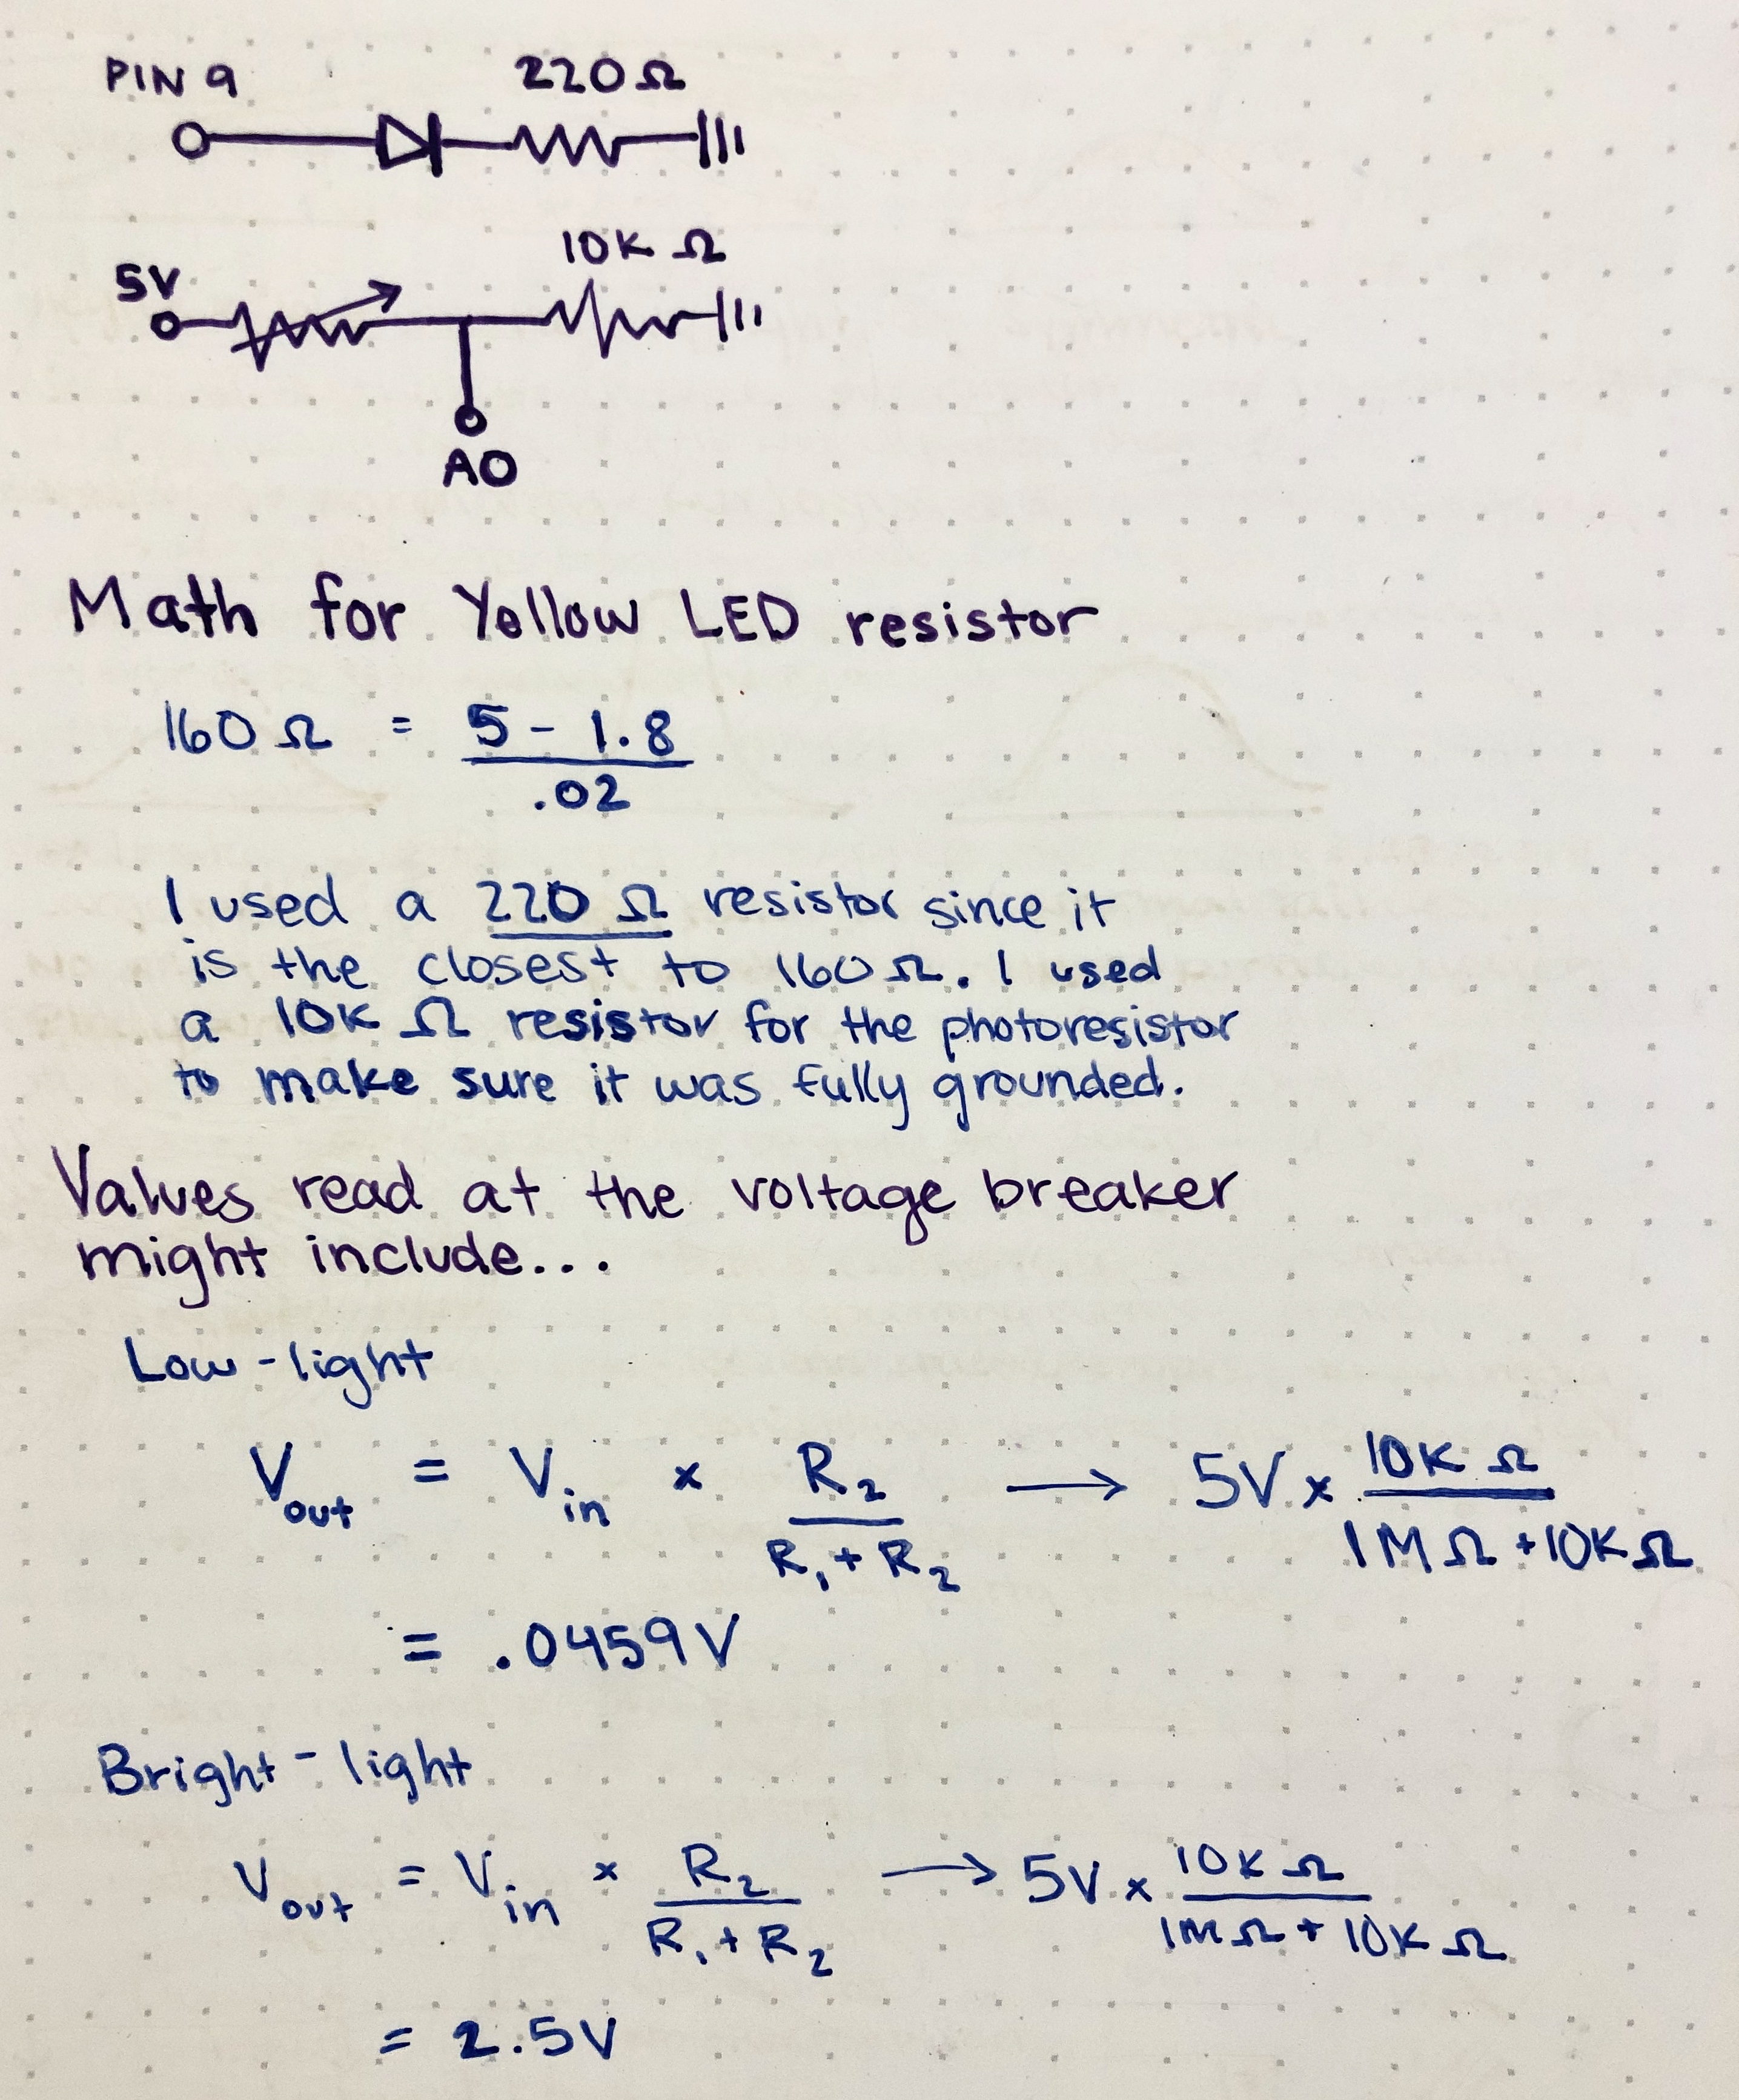 PIN 9
220Ω
10K Ω
5V
A0
Math for Yellow LED resistor
160Ω = 5 - 1.8
.02
I used a 220 Ω resistor since it
is the closest to 160Ω. I used
a 10K Ω resistor for the photoresistor
to make sure it was fully grounded.
Values read at the voltage breaker
might include...
Low-light
Vout = Vin x R2 → 5V x 10K Ω
R1 + R2 1MΩ + 10KΩ
= .0459V
Bright-light
Vout = Vin x R2 → 5V x 10K Ω
R1 + R2 1MΩ + 10K Ω
= 2.5V